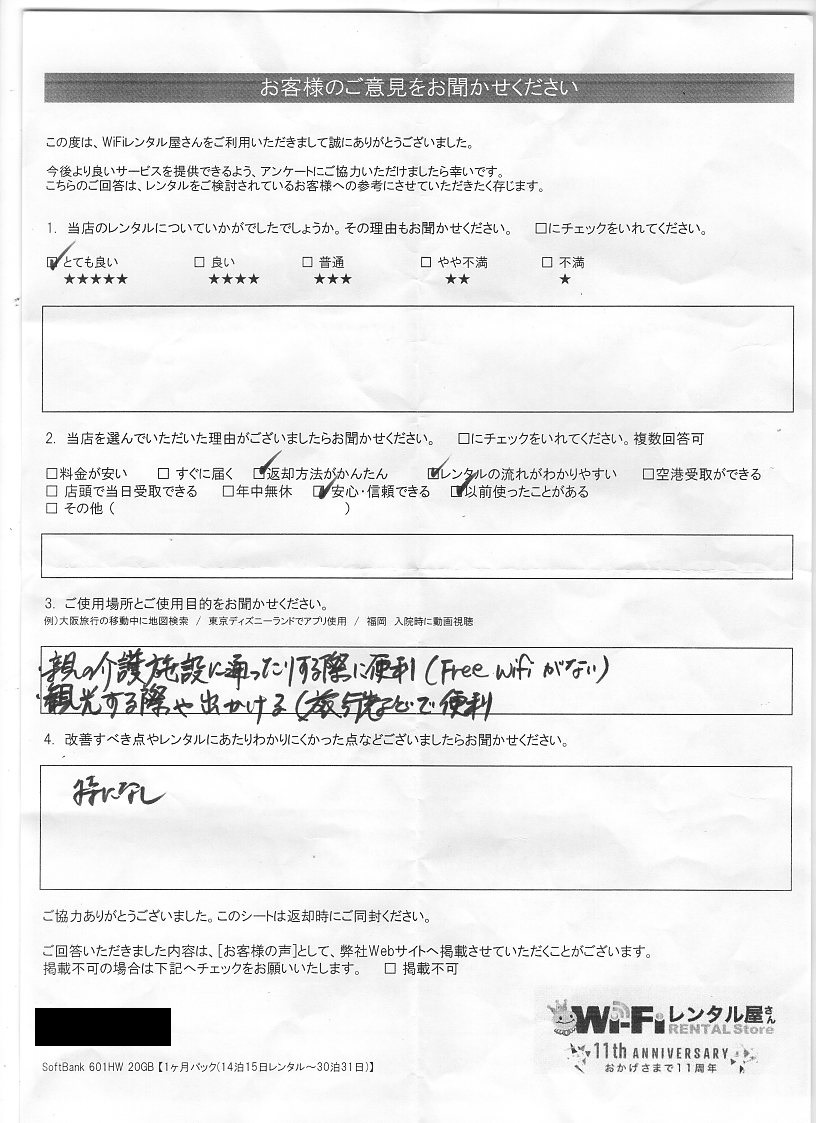 お客様のご意見をお聞かせください
この度は、WiFiレンタル屋さんをご利用いただきまして誠にありがとうございました。
今後より良いサービスを提供できるよう、アンケートにご協力いただけましたら幸いです。
こちらのご回答は、レンタルをご検討されているお客様への参考にさせていただきたく存じます。
1. 当店のレンタルについていかがでしたでしょうか。その理由もお聞かせください。 □にチェックをいれてください。
☑とても良い □ 良い □ 普通 □ やや不満 □ 不満
★★★★★ ★★★★ ★★★ ★★ ★
2. 当店を選んでいただいた理由がございましたらお聞かせください。 □にチェックをいれてください。複数回答可
□料金が安い □ すぐに届く ☑返却方法がかんたん ☑レンタルの流れがわかりやすい □空港受取ができる
□ 店頭で当日受取できる □年中無休 ☑安心・信頼できる ☑以前使ったことがある
□ その他 ( )
3. ご使用場所とご使用目的をお聞かせください。
例)大阪旅行の移動中に地図検索 / 東京ディズニーランドでアプリ使用 / 福岡 入院時に動画視聴
・親の介護施設に通ったりする際に便利 (Free wifi がない)
・観光する際や出かける(旅行などで便利
4. 改善すべき点やレンタルにあたりわかりにくかった点などございましたらお聞かせください。
特になし
ご協力ありがとうございました。このシートは返却時にご同封ください。
ご回答いただきました内容は、[お客様の声]として、弊社Webサイトへ掲載させていただくことがございます。
掲載不可の場合は下記へチェックをお願いいたします。 □ 掲載不可
Wi-Fiレンタル屋さん
RENTAL Store
11th ANNIVERSARY
おかげさまで11周年
SoftBank 601HW 20GB【1ヶ月パック(14泊15日レンタル～30泊31日)】